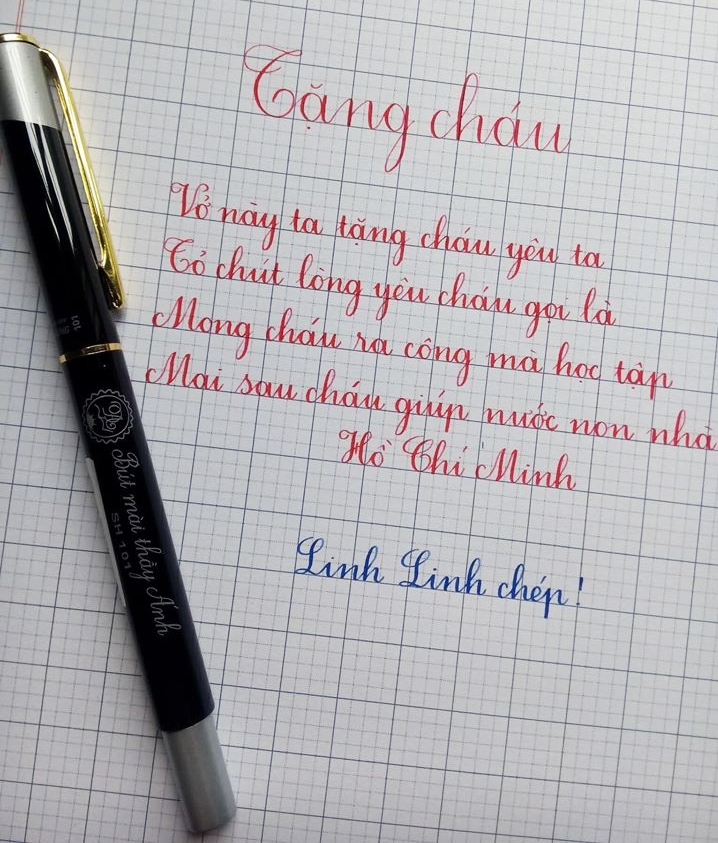 Tặng cháu
Vở này ta tặng cháu yêu ta
Tỏ chút lòng yêu cháu gọi là
Mong cháu ra công mà học tập
Mai sau cháu giúp nước non nhà
Hồ Chí Minh
Linh Linh chép!
Bút mài thầy Ánh
SH 101